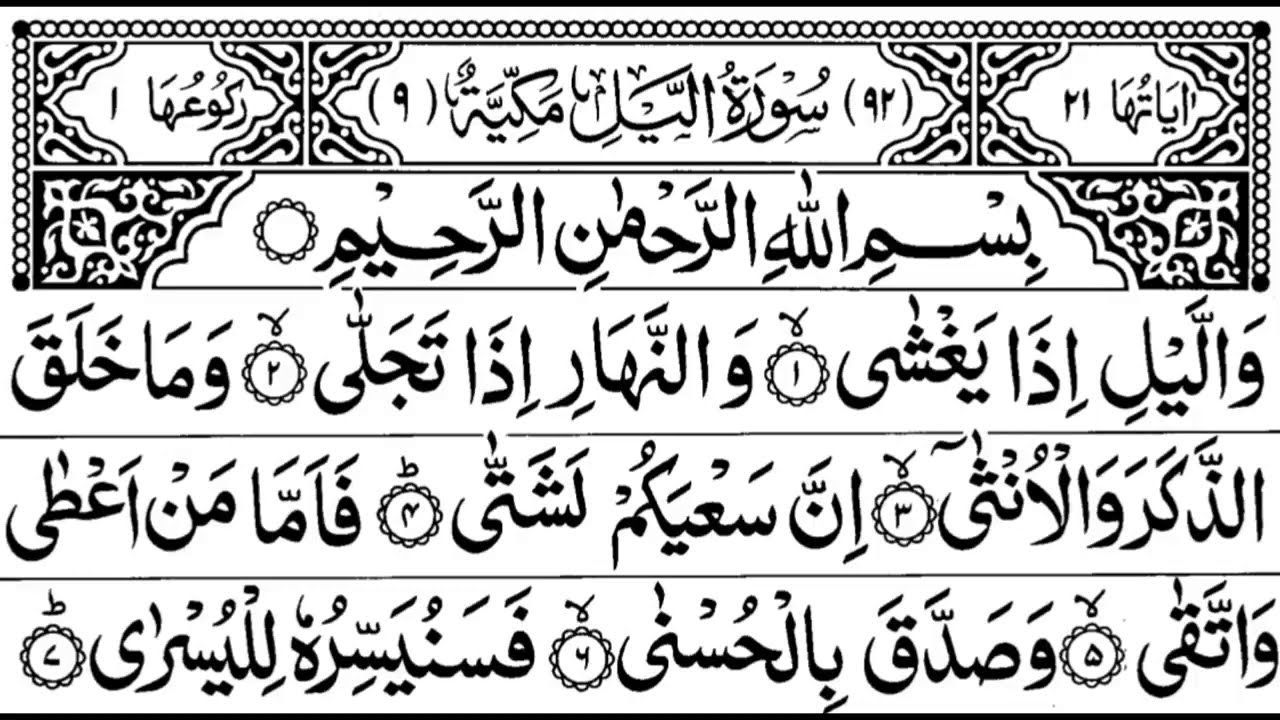 اٰيَاتُهَا ٢١ (٩٢) سُوْرَةُ الَّيْلِ مَكِّيَّةٌ (٩) رُكُوْعُهَا ١
بِسْمِ اللّٰهِ الرَّحْمٰنِ الرَّحِيْمِ
وَالَّيْلِ اِذَا يَغْشٰى ۙ﴿١﴾ وَالنَّهَارِ اِذَا تَجَلّٰى ۙ﴿٢﴾ وَمَا خَلَقَ
الذَّكَرَ وَالْاُنْثٰۤى ۙ﴿٣﴾ اِنَّ سَعْيَكُمْ لَشَتّٰى ؕ﴿۴﴾ فَاَمَّا مَنْ اَعْطٰى
وَاتَّقٰى ۙ﴿۵﴾ وَصَدَّقَ بِالْحُسْنٰى ۙ﴿۶﴾ فَسَنُيَسِّرُهٗ لِلْيُسْرٰى ؕ﴿٧﴾